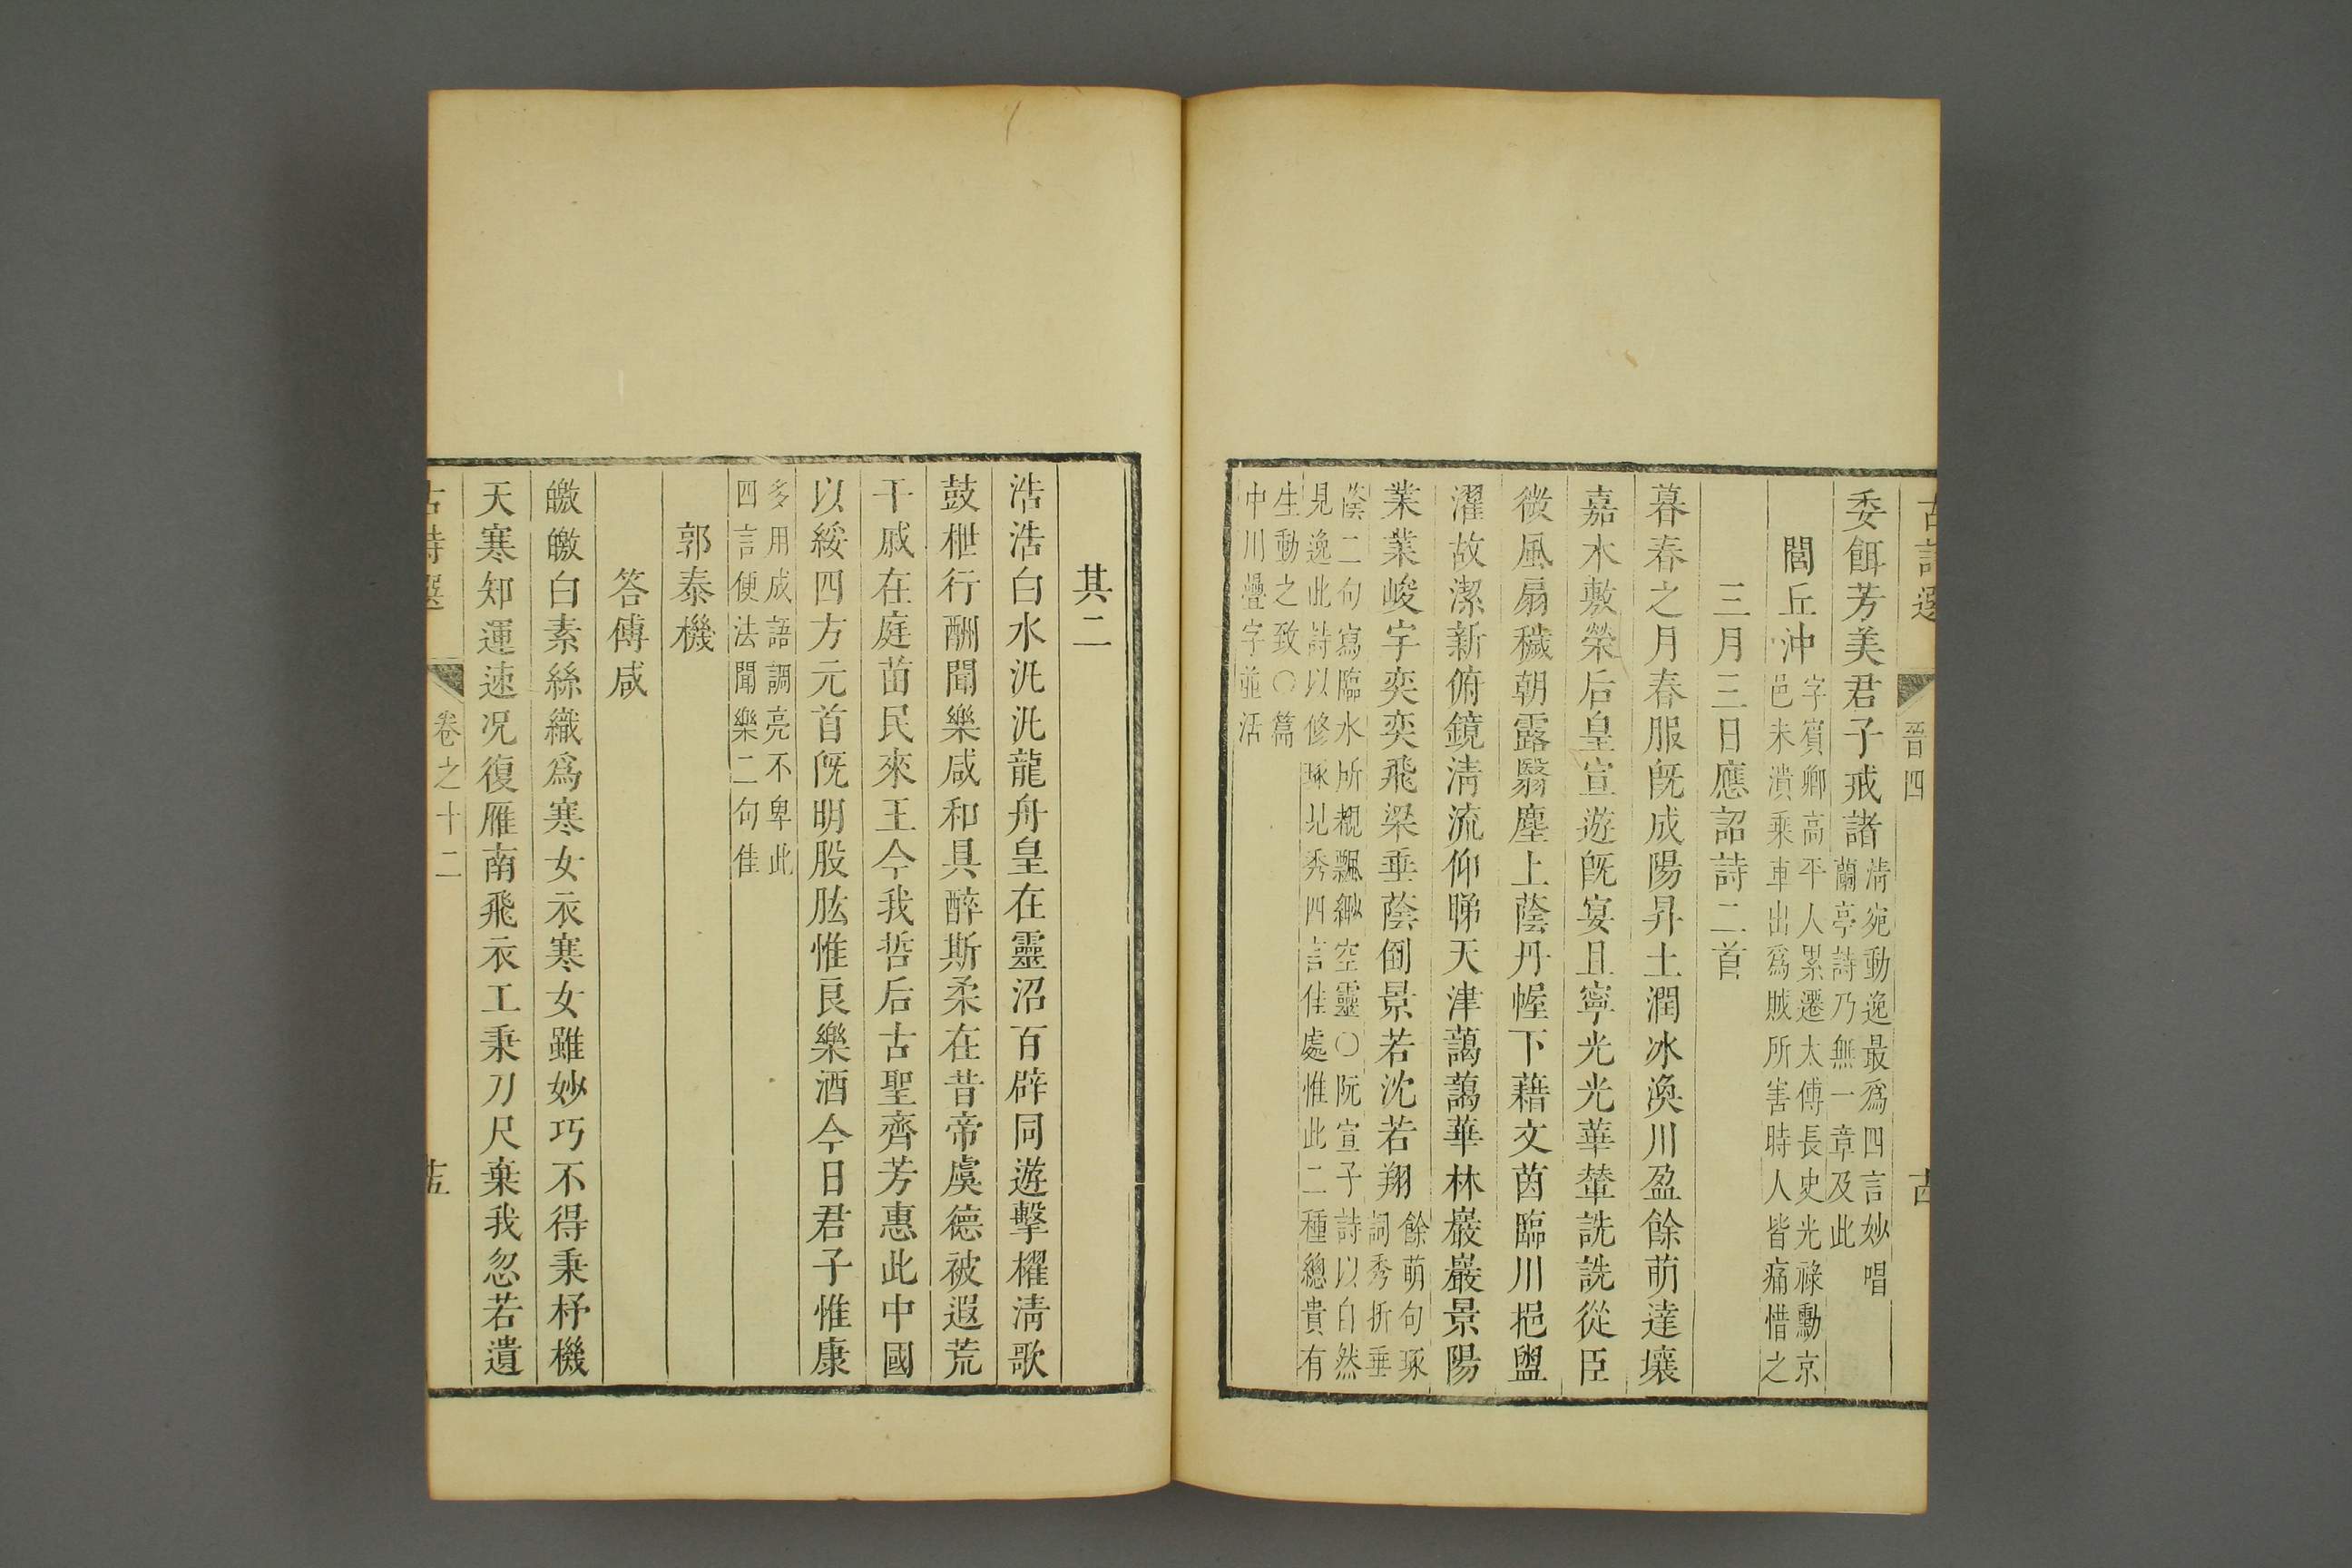 古詩選 晉四 古
委餌芳美君子戒諸清宛動逸最爲四言妙唱
蘭亭詩乃無一章及此
閭丘沖字賓卿高平人累遷太傅長史光祿勳京
邑未潰乘車出爲賊所害時人皆痛惜之
三月三日應詔詩二首
暮春之月春服既成陽昇土潤冰渙川盈餘萌達壤
嘉木敷榮后皇宣遊既宴且寧光光華輦詵詵從臣
微風扇穢朝露翳塵上蔭丹幄下藉文茵臨川挹盥
濯故潔新俯鏡清流仰睇天津藹藹華林巖巖景陽
業業峻宇奕奕飛梁垂蔭倒景若沈若翔餘萌句琢
詞秀折垂
蔭二句寫臨水所覩飄緲空靈○阮宣子詩以自然
見逸此詩以修琢見秀四言佳處惟此二種總貴有
生動之致○篇
中川疊字並活
其二
浩浩白水汎汎龍舟皇在靈沼百辟同遊擊櫂清歌
鼓枻行酬聞樂咸和具醉斯柔在昔帝虞德被遐荒
干戚在庭苗民來王今我哲后古聖齊芳惠此中國
以綏四方元首既明股肱惟良樂酒今日君子惟康
多用成語調亮不卑此
四言便法聞樂二句佳
郭泰機
答傅咸
皦皦白素絲織爲寒女衣寒女雖妙巧不得秉杼機
天寒知運速况復雁南飛衣工秉刀尺棄我忽若遺
古詩選 卷之十二 十五